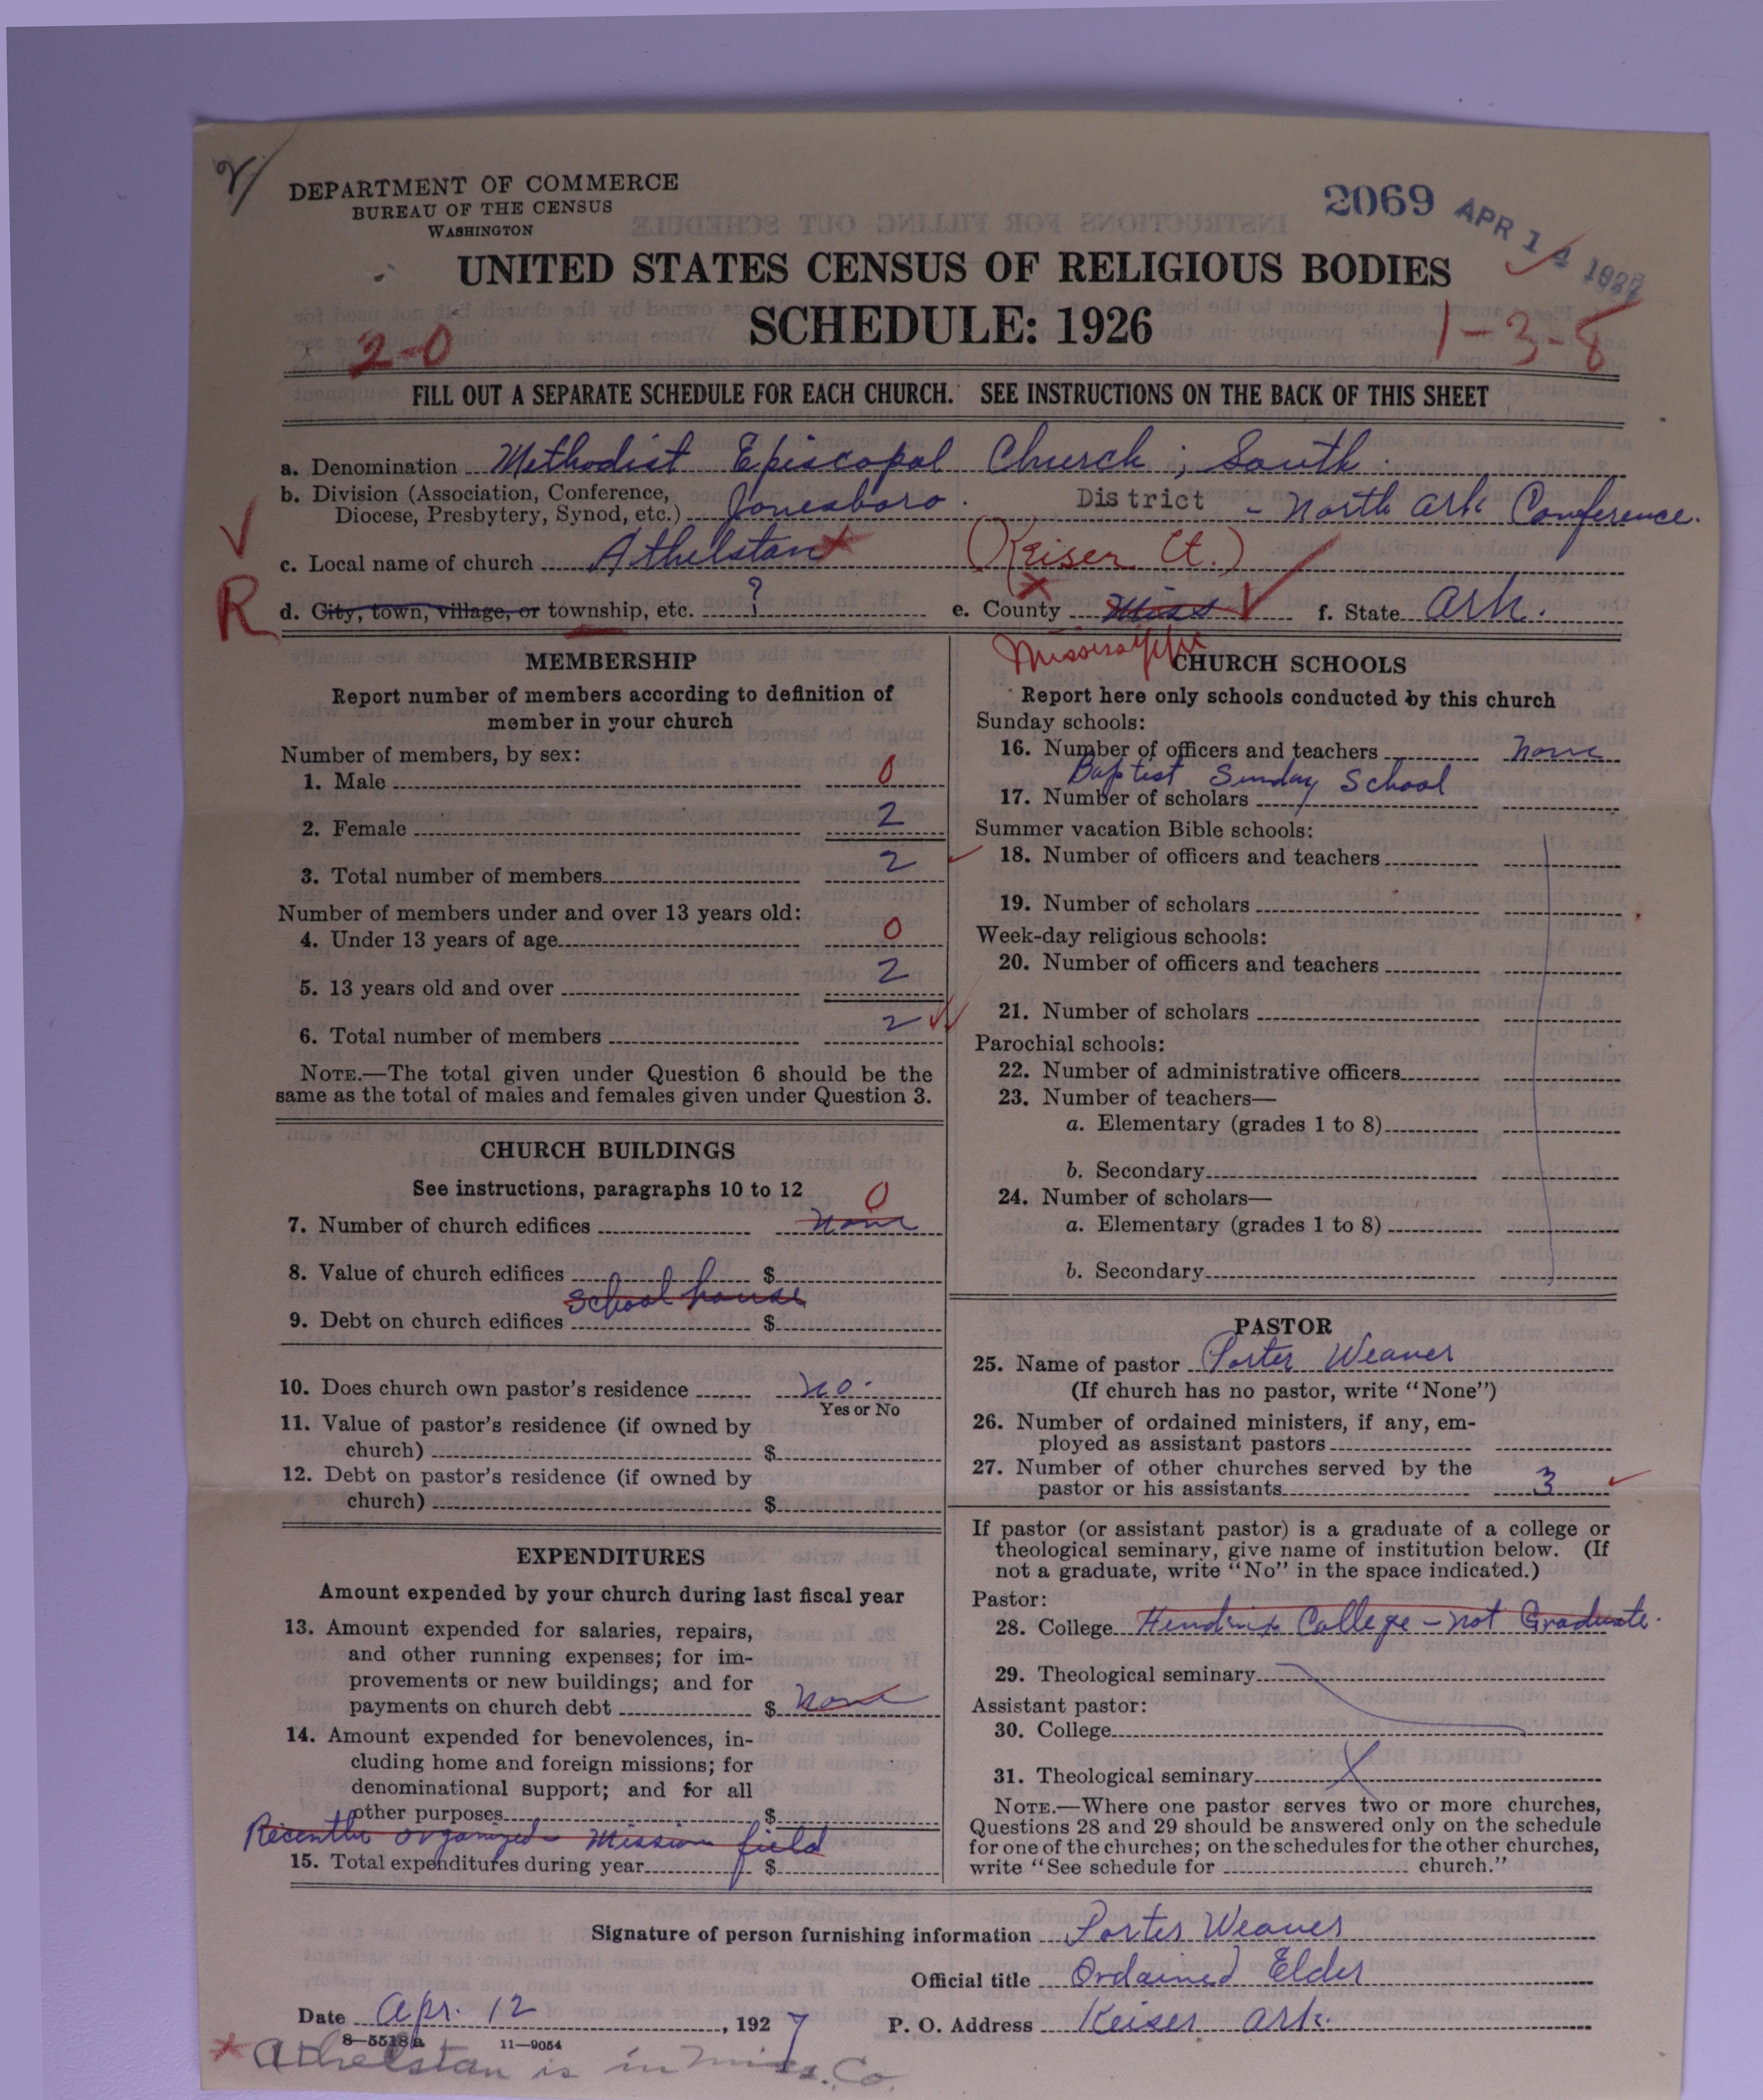 DEPARTMENT OF COMMERCE
BUREAU OF THE CENSUS
WASHINGTON
2069 APR 14 1927
UNITED STATES CENSUS OF RELIGIOUS BODIES
SCHEDULE: 1926
2-0
1-3-8
FILL OUT A SEPARATE SCHEDULE FOR EACH CHURCH. SEE INSTRUCTIONS ON THE BACK OF THIS SHEET
a. Denomination Methodist Episcopal Church, South.
b. Division (Association, Conference, Diocese, Presbytery, Synod, etc.) Jonesboro. District - North Ark Conference.
c. Local name of church Athelstan x (Keiser Ct.)
R d. City, town, village, or township, etc. ? e. County Miss f. State Ark.
Mississippi
MEMBERSHIP
Report number of members according to definition of
member in your church
Number of members, by sex:
1. Male 0
2. Female 2
3. Total number of members 2
Number of members under and over 13 years old:
4. Under 13 years of age 0
5. 13 years old and over 2
6. Total number of members 2
NOTE.—The total given under Question 6 should be the
same as the total of males and females given under Question 3.
CHURCH BUILDINGS
See instructions, paragraphs 10 to 12
0
7. Number of church edifices none
8. Value of church edifices $
school house
9. Debt on church edifices $
10. Does church own pastor's residence no.
Yes or No
11. Value of pastor's residence (if owned by
church) $
12. Debt on pastor's residence (if owned by
church) $
EXPENDITURES
Amount expended by your church during last fiscal year
13. Amount expended for salaries, repairs,
and other running expenses; for im-
provements or new buildings; and for
payments on church debt $ none
14. Amount expended for benevolences, in-
cluding home and foreign missions; for
denominational support; and for all
other purposes $
Recently organized mission field
15. Total expenditures during year $
CHURCH SCHOOLS
Report here only schools conducted by this church
Sunday schools:
16. Number of officers and teachers none
Baptist Sunday School
17. Number of scholars
Summer vacation Bible schools:
18. Number of officers and teachers
19. Number of scholars
Week-day religious schools:
20. Number of officers and teachers
21. Number of scholars
Parochial schools:
22. Number of administrative officers
23. Number of teachers—
a. Elementary (grades 1 to 8)
b. Secondary
24. Number of scholars—
a. Elementary (grades 1 to 8)
b. Secondary
PASTOR
25. Name of pastor Porter Weaver
(If church has no pastor, write "None")
26. Number of ordained ministers, if any, em-
ployed as assistant pastors
27. Number of other churches served by the
pastor or his assistants 3
If pastor (or assistant pastor) is a graduate of a college or
theological seminary, give name of institution below. (If
not a graduate, write "No" in the space indicated.)
Pastor:
28. College Hendrix College - not Graduate.
29. Theological seminary
Assistant pastor:
30. College
31. Theological seminary
NOTE.—Where one pastor serves two or more churches,
Questions 28 and 29 should be answered only on the schedule
for one of the churches; on the schedules for the other churches,
write "See schedule for church."
Signature of person furnishing information Porter Weaver
Official title Ordained Elder
Date Apr. 12, 1927 P. O. Address Keiser Ark.
8-5518a 11-9054
* Athelstan is in Miss. Co.